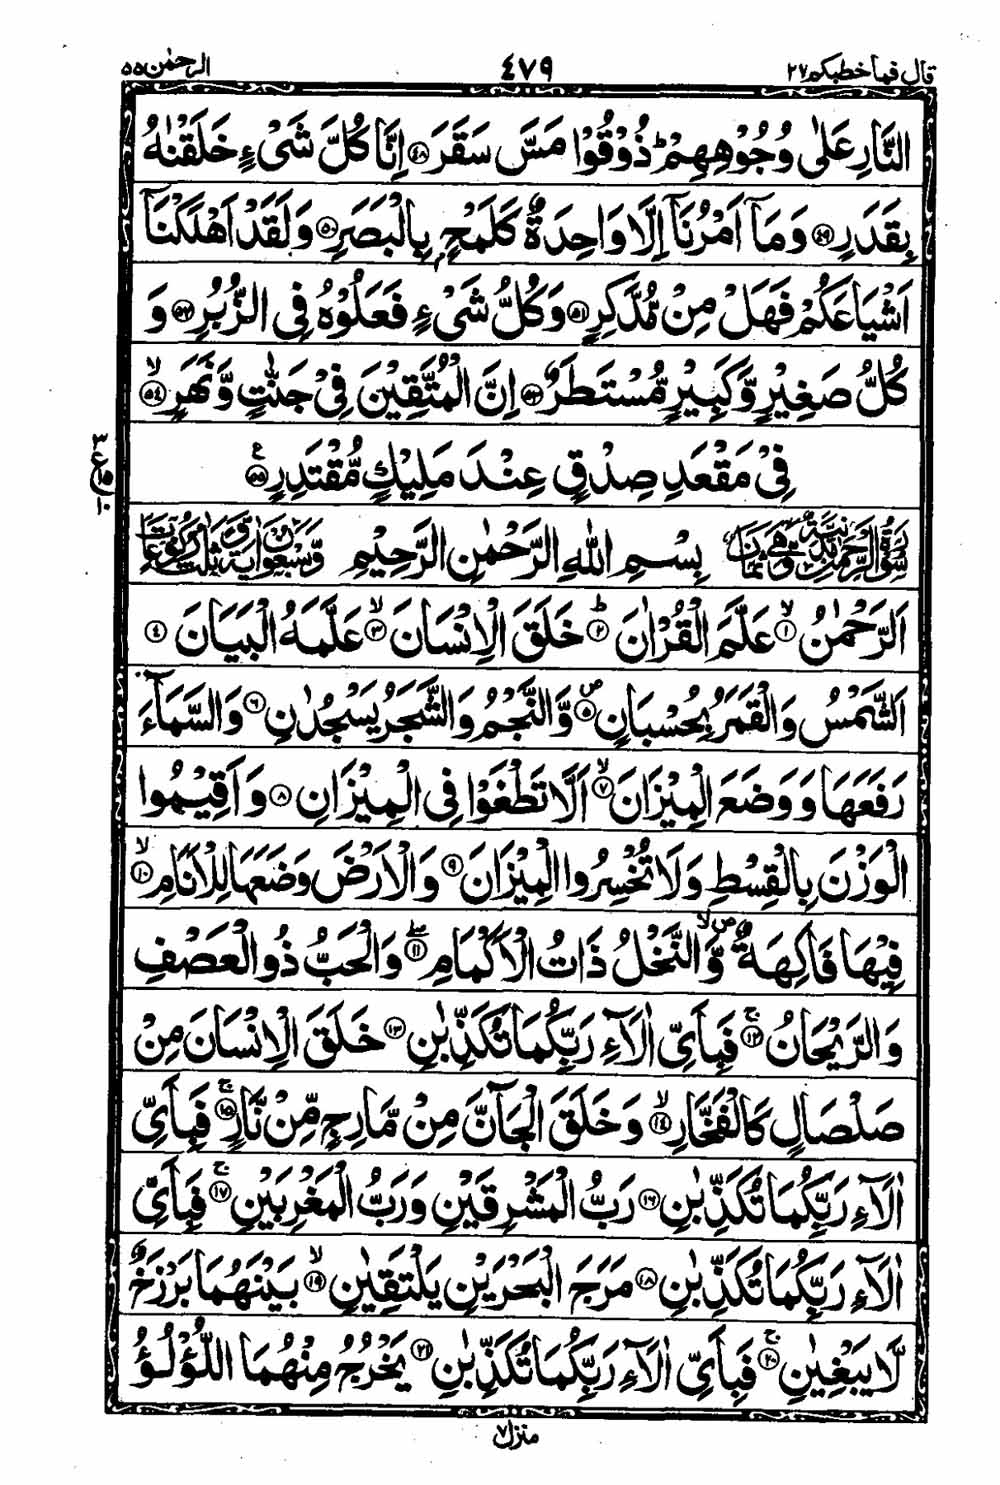 قال فما خطبكم ٢٧ ٤٧٩ الرحمٰن ٥٥
النَّارِ عَلٰى وُجُوْهِهِمْ ؕ ذُوْقُوْا مَسَّ سَقَرَ ﴿٤٨﴾ اِنَّا كُلَّ شَیْءٍ خَلَقْنٰهُ
بِقَدَرٍ ﴿٤٩﴾ وَ مَاۤ اَمْرُنَاۤ اِلَّا وَاحِدَةٌ كَلَمْحٍۭ بِالْبَصَرِ ﴿٥٠﴾ وَ لَقَدْ اَهْلَكْنَاۤ
اَشْيَاعَكُمْ فَهَلْ مِنْ مُّدَّكِرٍ ﴿٥١﴾ وَ كُلُّ شَیْءٍ فَعَلُوْهُ فِی الزُّبُرِ ﴿٥٢﴾ وَ
كُلُّ صَغِيْرٍ وَّ كَبِيْرٍ مُّسْتَطَرٌ ﴿٥٣﴾ اِنَّ الْمُتَّقِيْنَ فِیْ جَنّٰتٍ وَّ نَهَرٍ ﴿٥٤﴾ۙ
فِیْ مَقْعَدِ صِدْقٍ عِنْدَ مَلِيْكٍ مُّقْتَدِرٍ ﴿٥٥﴾ ع
بِسْمِ اللهِ الرَّحْمٰنِ الرَّحِيْمِ
اَلرَّحْمٰنُ ﴿١﴾ۙ عَلَّمَ الْقُرْاٰنَ ﴿٢﴾ؕ خَلَقَ الْاِنْسَانَ ﴿٣﴾ۙ عَلَّمَهُ الْبَيَانَ ﴿٤﴾
اَلشَّمْسُ وَ الْقَمَرُ بِحُسْبَانٍ ﴿٥﴾ۖ وَّ النَّجْمُ وَ الشَّجَرُ يَسْجُدٰنِ ﴿٦﴾ وَ السَّمَآءَ
رَفَعَهَا وَ وَضَعَ الْمِيْزَانَ ﴿٧﴾ۙ اَلَّا تَطْغَوْا فِی الْمِيْزَانِ ﴿٨﴾ وَ اَقِيْمُوا
الْوَزْنَ بِالْقِسْطِ وَ لَا تُخْسِرُوا الْمِيْزَانَ ﴿٩﴾ وَ الْاَرْضَ وَضَعَهَا لِلْاَنَامِ ﴿١٠﴾ۙ
فِيْهَا فَاكِهَةٌ وَّ النَّخْلُ ذَاتُ الْاَكْمَامِ ﴿١١﴾ وَ الْحَبُّ ذُو الْعَصْفِ
وَ الرَّيْحَانُ ﴿١٢﴾ۚ فَبِاَیِّ اٰلَآءِ رَبِّكُمَا تُكَذِّبٰنِ ﴿١٣﴾ خَلَقَ الْاِنْسَانَ مِنْ
صَلْصَالٍ كَالْفَخَّارِ ﴿١٤﴾ۙ وَ خَلَقَ الْجَآنَّ مِنْ مَّارِجٍ مِّنْ نَّارٍ ﴿١٥﴾ۚ فَبِاَیِّ
اٰلَآءِ رَبِّكُمَا تُكَذِّبٰنِ ﴿١٦﴾ رَبُّ الْمَشْرِقَيْنِ وَ رَبُّ الْمَغْرِبَيْنِ ﴿١٧﴾ۚ فَبِاَیِّ
اٰلَآءِ رَبِّكُمَا تُكَذِّبٰنِ ﴿١٨﴾ مَرَجَ الْبَحْرَيْنِ يَلْتَقِيٰنِ ﴿١٩﴾ۙ بَيْنَهُمَا بَرْزَخٌ
لَّا يَبْغِيٰنِ ﴿٢٠﴾ۚ فَبِاَیِّ اٰلَآءِ رَبِّكُمَا تُكَذِّبٰنِ ﴿٢١﴾ يَخْرُجُ مِنْهُمَا اللُّؤْلُؤُ
منزل ٧